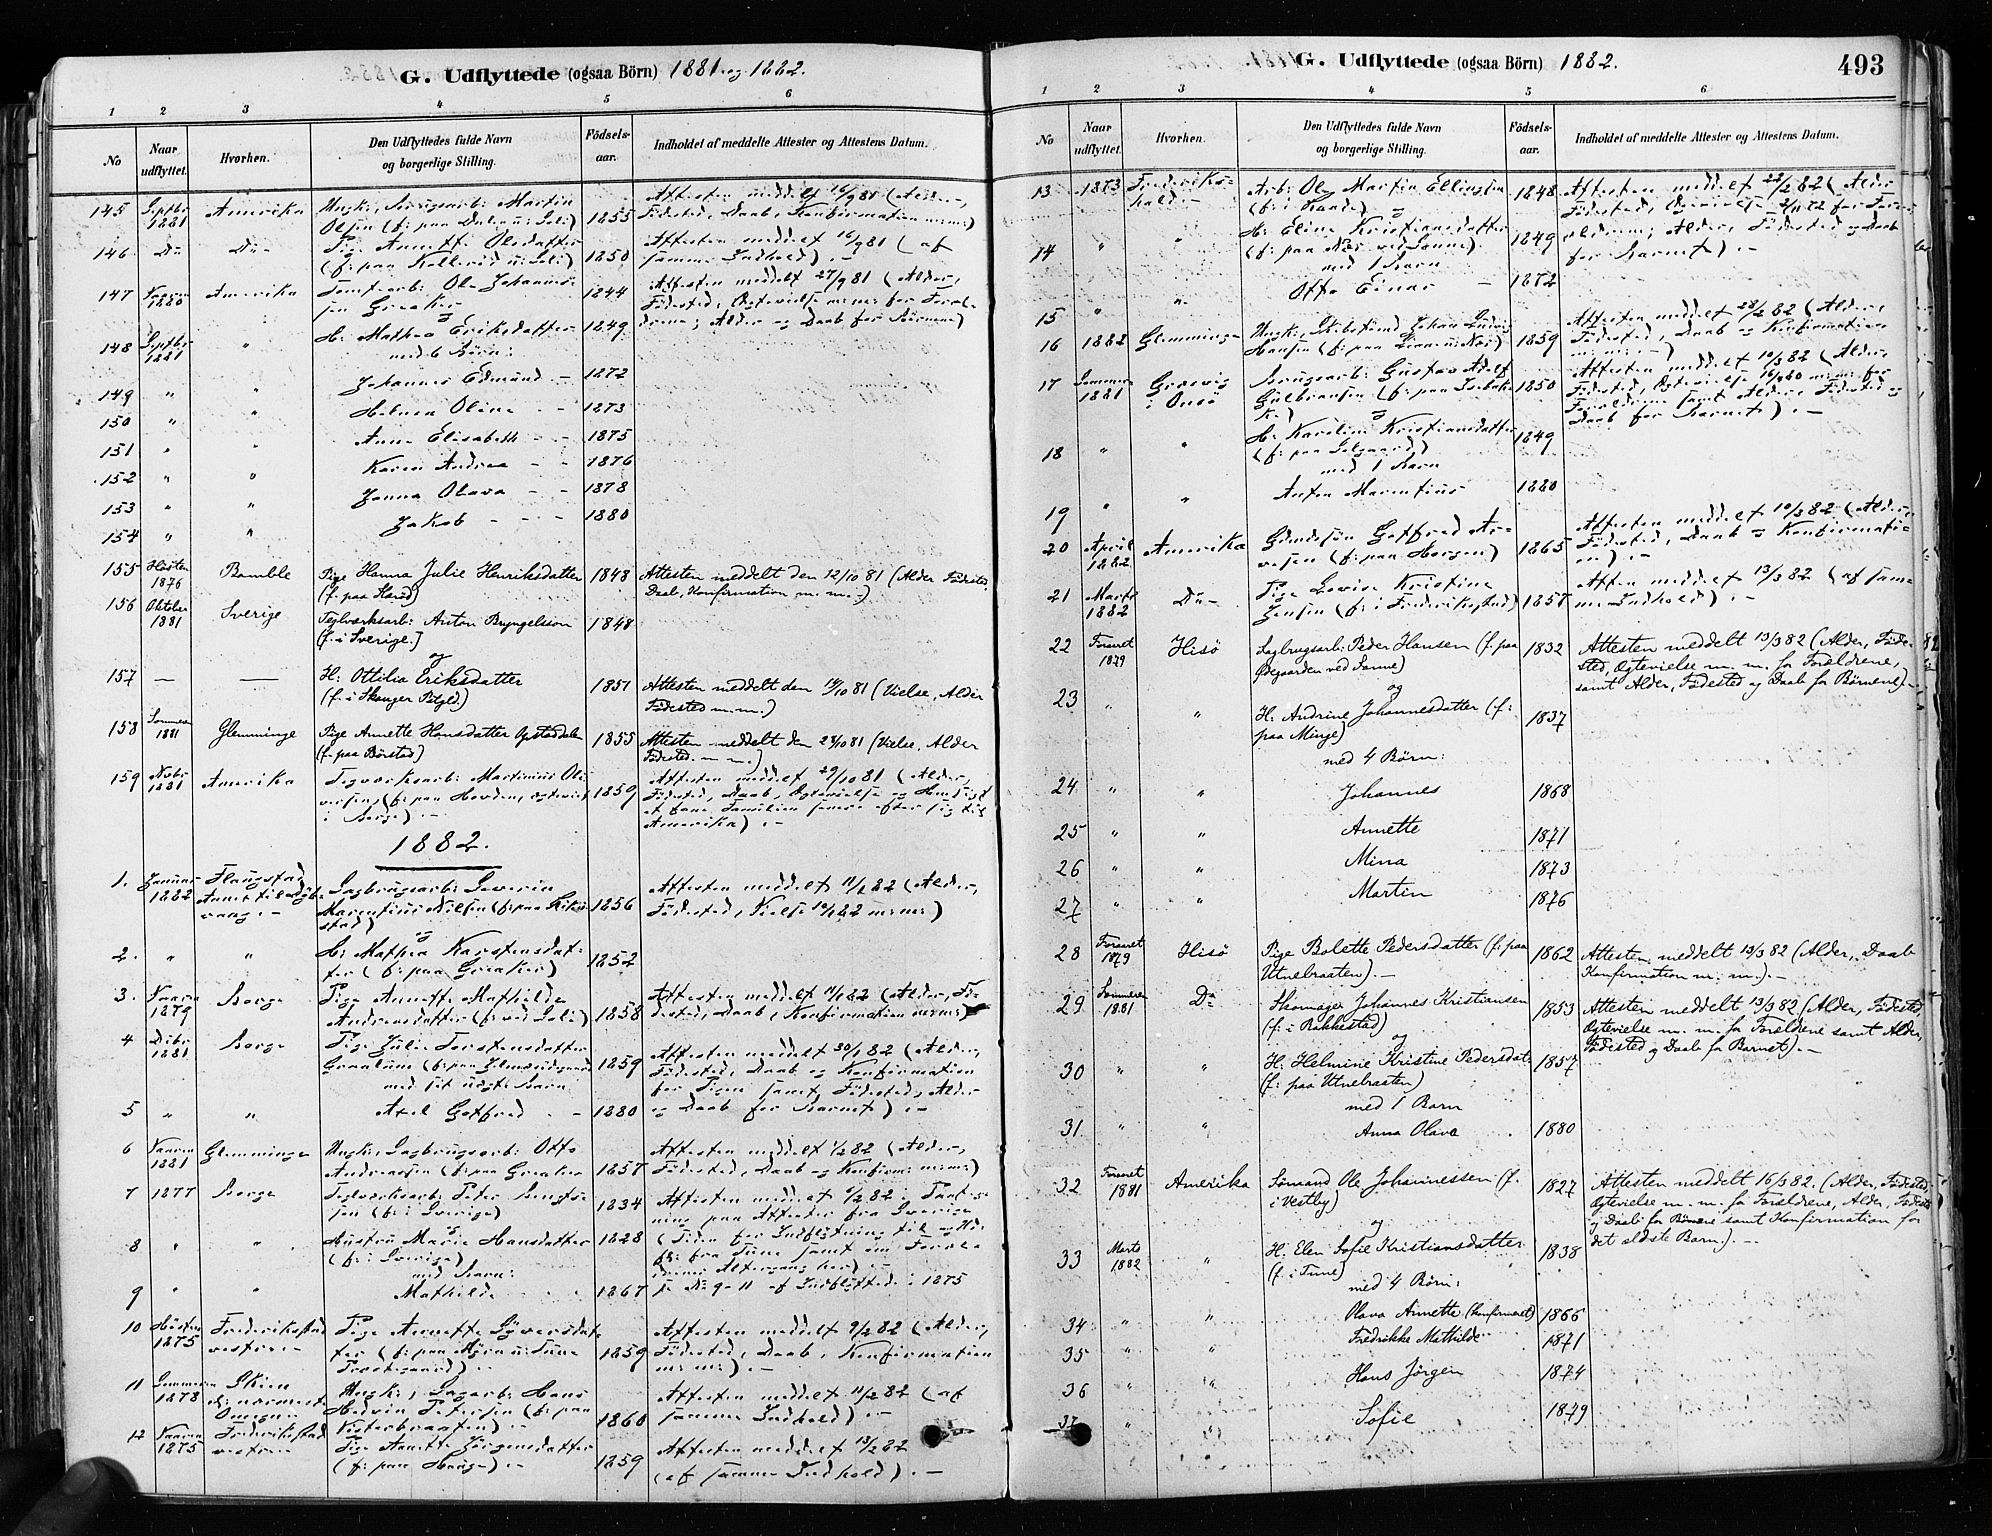 G. Udflyttede (ogsaa Börn) 1881 og 1882.
1 2 3 4 5 6
No
Naar udflyttet.
Hvorhen.
Den Udflyttedes fulde Navn og borgerlige Stilling.
Födsels-aar.
Indholdet af meddelte Attester og Attestens Datum.
145 Septbr 1881 Amerika Ungk., Brugsarb: Martin 1855 Attesten meddelt 16/9 81 (Alder,
Olsen (f: paa Dalen u: Soli) Födested, Daab, Konfirmation m: m:)
146 Do Do Pige Annette Olsdatter 1850 Attesten meddelt 16/9 81 (af
(f: paa Kallerød u: Soli) samme Indhold). —
147 Vaaren 1880 Amerika Tomtearb: Ole Johannes- 1844 Attesten meddelt 27/9 81 (Alder,
sen Greaker Födested, Ægtevielse m: m: for Foræl-
og drene; Alder og Daab for Börnene)
148 Septbr 1881 " H: Mathea Eriksdatter 1849
med 6 Börn:
149 " " Johannes Edmund — 1872
150 " " Helmea Oline - - 1873
151 " " Anne Elisabeth - - 1875
152 " " Karen Andrea - - 1876
153 " " Janna Olava - - 1878
154 " " Jakob - - - 1880
155 Hösten 1876 Bamble Pige Hanna Julie Henriksdatter 1848 Attesten meddelt den 12/10 81 (Alder Födested,
Daab, Konfirmation m. m.)
156 Oktober 1881 Sverige Teglværksarb: Anton Bryngelsson 1848
(f. i Sverige.)
og
157 — — H: Ottilia Eriksdatter 1851 Attesten meddelt den 14/10 81 (Vielse, Alder
(f. i Skauger Pstgld.) Födested m. m.)
158 Sommeren 1881 Glemminge Pige Annette Hansdatter Opstaddalen 1855 Attesten meddelt den 28/10 81 (Vielse, Alder
(f. paa Börstad) Födested. m. m.)
159 Novbr 1881 Amerika Tegværksarb: Martinius Oli- 1859 Attesten meddelt 29/10 81 (Alder,
versen, (f: paa Hovden, ægteviet Födested, Daab, Ægtevielse og Hensigt
i Borge). — at have Familien senere efter sig til
Amerika). —
1882.
1. Januar 1882 Sagbrugsarb: Severin 1856 Attesten meddelt 11/1 82 (Alder,
Marentius Nilsen (f: paa Födested, Vielse m: m:)
og
2. " " H: Mathea Karstensdat- 1852
ter (f: paa Greaker)
3. Vaaren 1879 Borge Pige Annette Mathilde 1858 Attesten meddelt 11/1 82 (Alder, Fö-
Andreasdatter (f: ved Soli) dested, Daab, Konfirmation m: m:)
4 Dcbr 1881 Borge Pige Julie Torstensdatter 1859 Attesten meddelt 30/1 82 (Alder,
Graalum Födested, Daab og Konfirmation
med sit uægt: Barn for Pigen samt Födested, Alder
5 " " Axel Gotfred - - 1880 og Daab for Barnet). —
6 Vaaren 1881 Glemminge Ungk., Sagbrugsarb: Otto 1857 Attesten meddelt 1/2 82 (Alder,
Andreassen (f: paa Greaker Födested, Daab og Konfirm: m: m:)
7 1877 Borge Teglværksarb: Peter Bengts- 1834 Attesten meddelt 6/2 82
sen (f: i Sverige) paa Attester fra Sverige
og (Tiden for Indflytning til og Ud-
8 " " Hustru Marie Hansdatter 1828 fl: fra Tune samt om Foræl-
(f: i Sverige) drenes Altergang her)
med Barn:
9 " " Mathilde - - 1867 jv. No 9-11 af Indflyttede i 1875
10 Hösten 1875 Frederikstad vestre.- Pige Annette Syversdat- 1859 Attesten meddelt 9/2 82 (Alder,
ter Födested, Daab, Konfirmation
m: m:). —
11 Sommeren 1878 Skien Ungk:, Sagarb: Hans 1860 Attesten meddelt 11/2 82 (af
nærmest Omegn Hedvin Petersen (f: paa samme Indhold). —
12 Vaaren 1875 Frederikstad vestre — Pige Anette Jörgensdatter 1859 Attesten meddelt 13/2 82
(f: paa Hauge). — (af samme Indhold). —
G. Udflyttede (ogsaa Börn) 1882.
493
1 2 3 4 5 6
No
Naar udflyttet.
Hvorhen.
Den Udflyttedes fulde Navn og borgerlige Stilling.
Födsels-aar.
Indholdet af meddelte Attester og Attestens Datum.
13 1873 Frederiks-hald.— Arb: Ole Martin Ellingsen 1848 Attesten meddelt 22/2 82 (Alder
(f: i Raade) og Födested, Ægtevielse for Foræl-
14 " " H: Eline Kristiansdatter 1849 drene; Alder, Födested og Daab
med 1 Barn for Barnet). —
15 " " Otto Einar — 1872
16 1882 Glemminge Ungk: Johan Ludvig 1859 Attesten meddelt 28/2 82 (Alder,
Hansen Födested, Daab og Konfirmation
m: m: —)
17 Sommeren 1881 Gresvig i Onsö Brugsarb: Gustav Adolf 1850 Attesten meddelt 10/3 82 (Alder,
Gulbransen Födested, Ægtevielse m: m: for
og Forældrene samt Alder, Födested og
18 " " H: Karoline Kristiansdatter 1849 Daab for Barnet). —
med 1 Barn
19 " " Anton Marentius 1880
20 April 1882 Amerika Gaardssön Gotfred 1865 Attesten meddelt 10/3 82 (Alder,
(f: paa Horgen) Födested, Daab og Konfirmati-
on). —
21 Marts 1882 Do — Pige Lovise Kristine 1857 Attesten meddelt 13/3 82 (af sam-
Jensen (f: i Frederikstad) me Indhold). —
22 Foraaret 1879 Hisö Sagbrugsarb: Peder Hansen (f: paa 1832 Attesten meddelt 13/3 82 (Alder, Föde-
Ödegaarden ved Sanne) sted, Ægtevielse m. m. for Forældrene,
og samt Alder, Födested og Daab for Börnene). —
23 " " H: Andrine Johannesdatter (f: 1837
paa Minge)
med 4 Börn:
24 " " Johannes 1868
25 " " Annette 1871
26 " " Mina 1873
27 " " Martin 1876
28 Foraaret 1879 Hisö Pige Bolette Pedersdatter (f: paa 1862 Attesten meddelt 13/3 82 (Alder, Daab
Utnebraaten). — Konfirmation m. m.). —
29 Sommeren 1881 Do Skomager Johannes Kristiansen 1853 Attesten meddelt 13/3 82 (Alder, Födested,
(f: i Rakkestad) Ægtevielse m. m. for Forældrene samt Alder,
og Födested og Daab for Barnet). —
30 " " H: Helmine Kristine Pedersdat. 1857
(f: paa Utnebraaten)
med 1 Barn
31 " " Anna Olava . 1880
32 Foraaret 1881 Amerika Sömand Ole Johannessen (f. 1827 Attesten meddelt 16/3 82. (Alder, Födested,
i Vestby) Ægtevielse m. m. for Forældrene, Alder, Födested
og og Daab for Börnene samt Konfirmation for
33 Marts 1882 " H: Elen Sofie Kristiansdatter 1838 det ældste Barn.). —
(f. i Tune)
med 4 Börn:
34 " " Olava Annette (konfirmeret) 1866
35 " " Fredrikke Mathilde 1871
36 " " Hans Jörgen 1874
37 " Sofie 1879